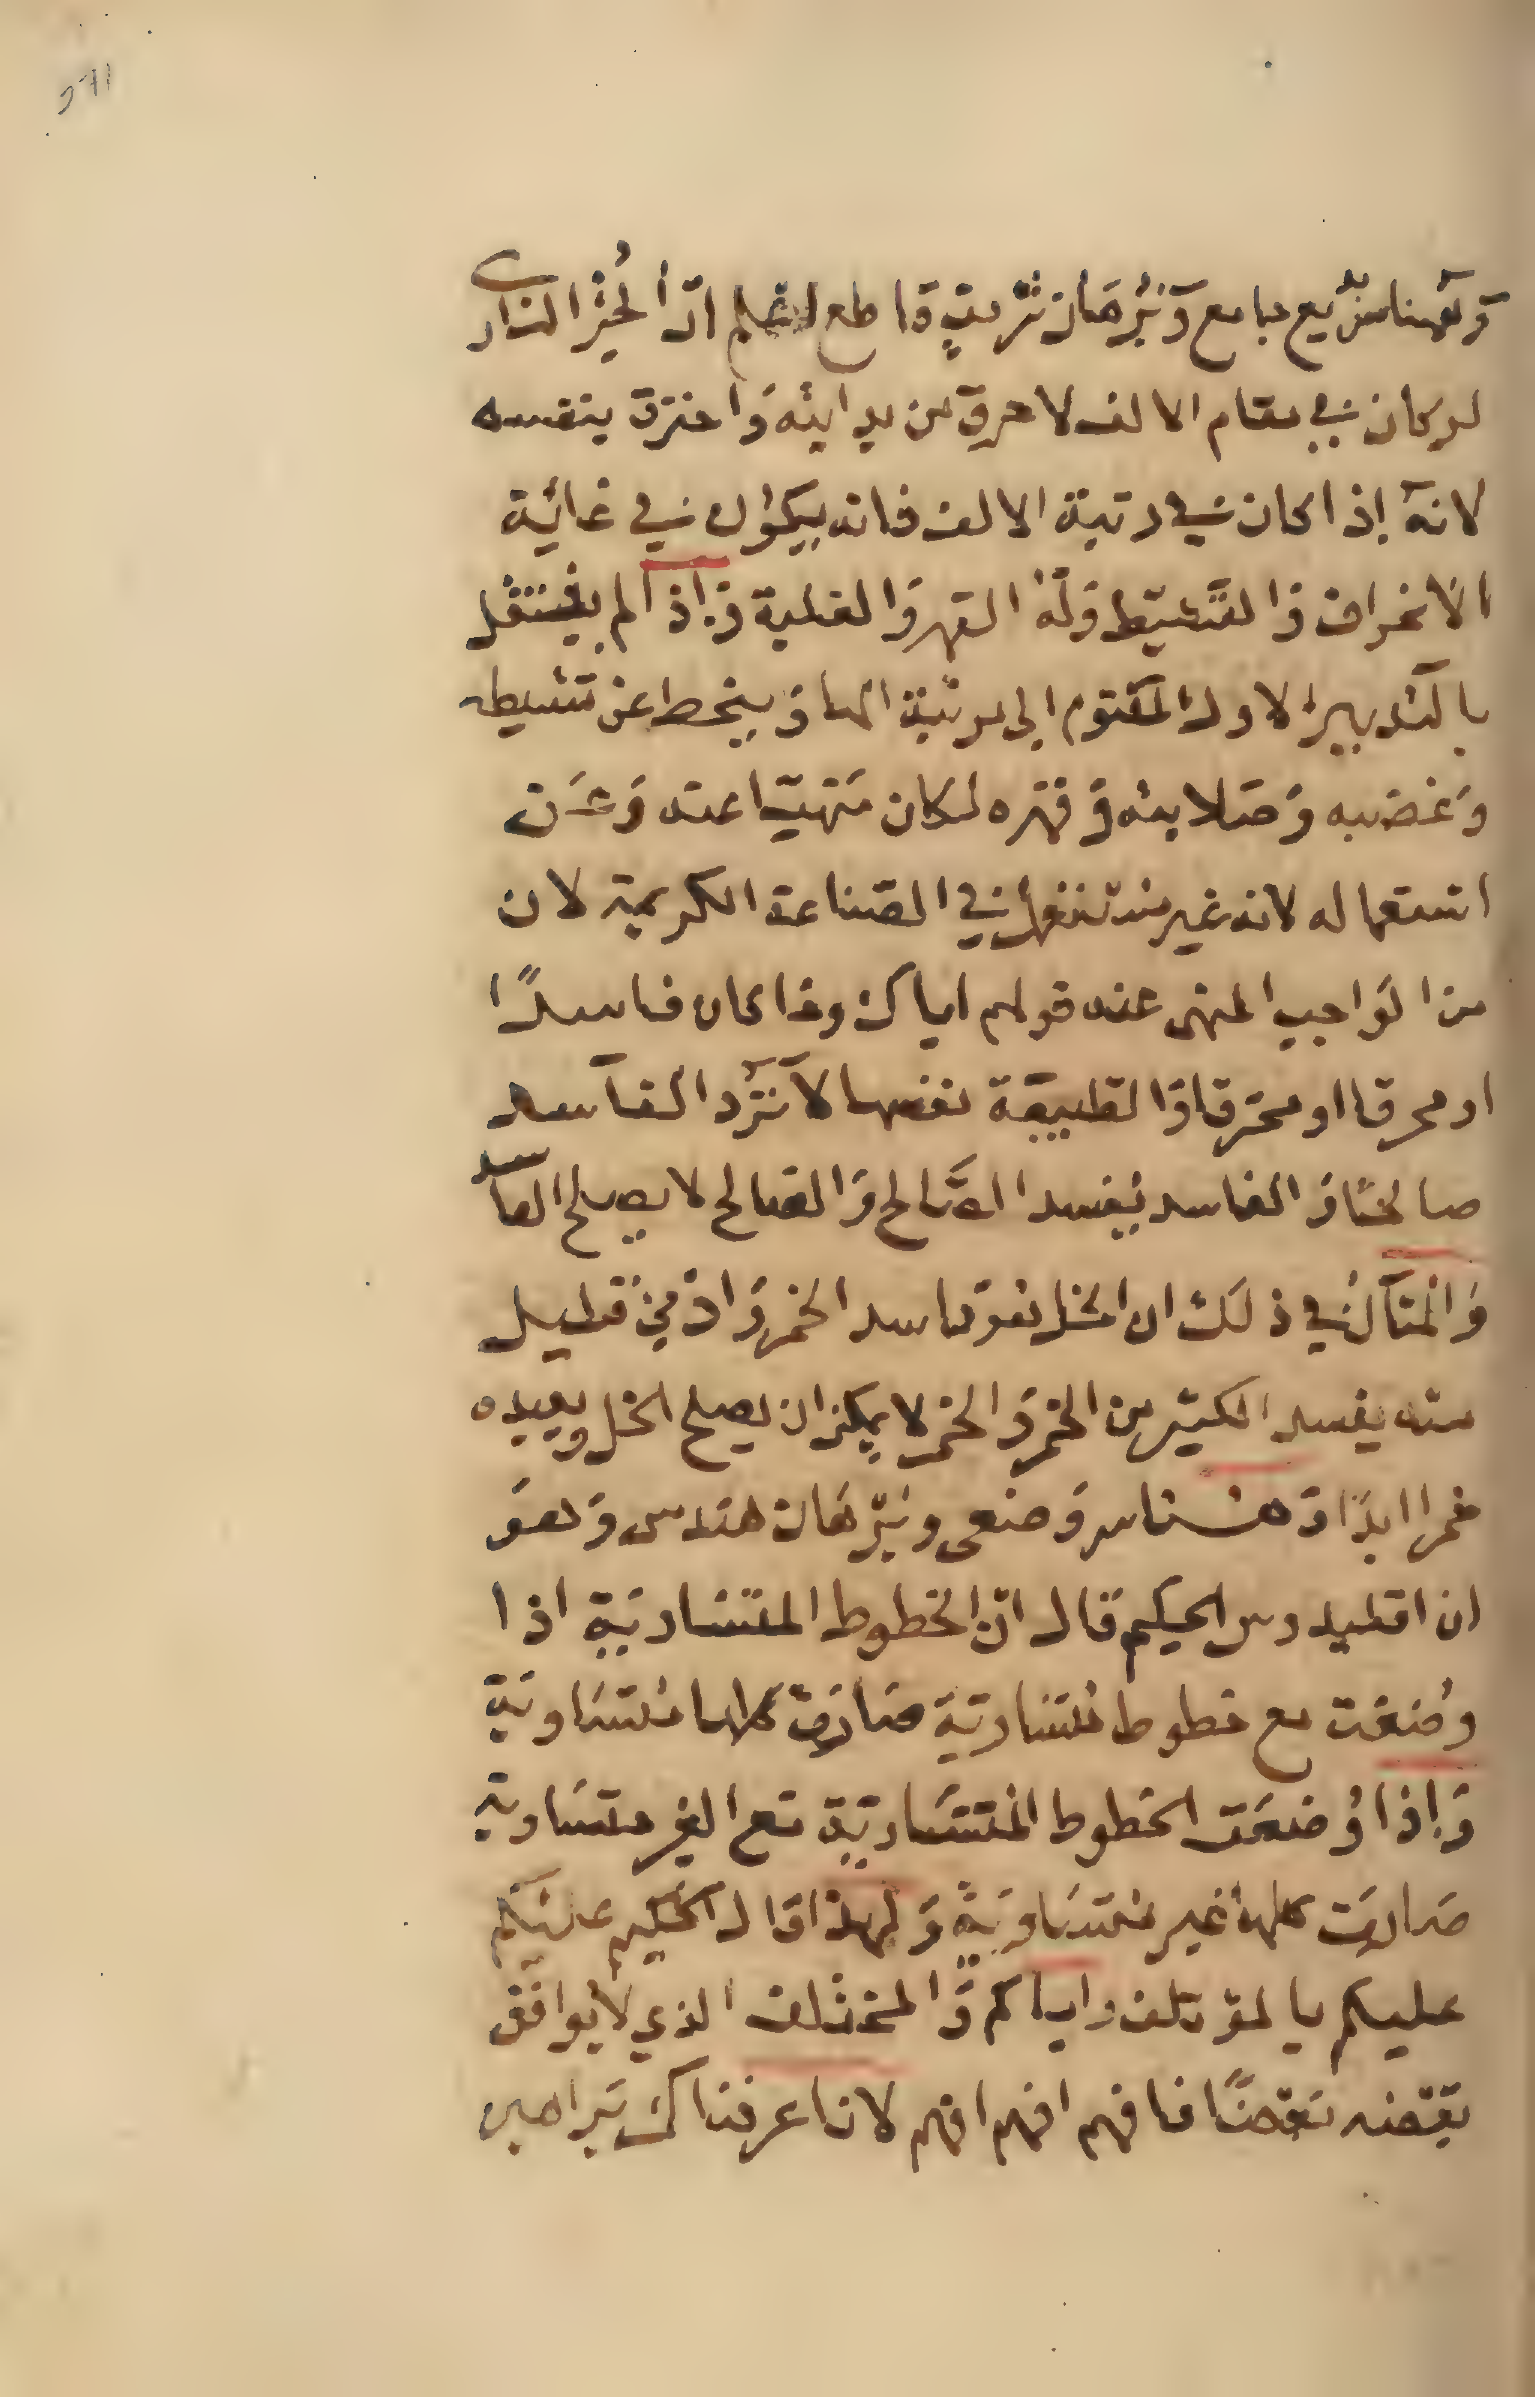 وههنا سر بديع جامع وبرهان شريف قاطع اعلم ان الجزء النارى
لو كان في مقام الالف لاحرق من بدايته واحترق بنفسه
لانه إذا كان في رتبة الالف فانه يكون في غائية
الانحراف والتشيط وله القهر والغلبة وإذا لم ينتقل
بالتدبير الاول المكتوم الى مرتبة الها وينحط عن تشيطه
وغضبه وصلابته وقهره لكان منهيا عنه وعن
استعماله لانه غير منتفع في الصناعة الكريمة لان
من الواجب المنهى عنه قولهم اياك وما كان فاسدًا
او محرقا او محترقا والطبيعة نفسها لا ترد الفاسد
صالحًا والفاسد يفسد الصَّالح والصالح لا يصلح الفاسد
والمثال في ذلك ان الخل هو فاسد الخمر وادنى قليل
منه يفسد الكثير من الخمر والخمر لا يمكن ان يصلح الخل ويعيده
خمرا ابدًا وهنا سر وضعى وبرهان هندسى وهو
ان اقليدوس الحكيم قال ان الخطوط المتساوية اذا
وُضعت مع خطوط متساوية صارت كلها متساوية
وإذا وُضعت الخطوط المتساوية مع الغير متساوية
صارت كلها غير متساوية ولهذا قال الحكيم عليكم
عليكم بالمؤتلف واياكم والمختلف الذي لا يوافق
بعضه بعضًا فافهم افهم افهم لانا عرفناك ببراهين